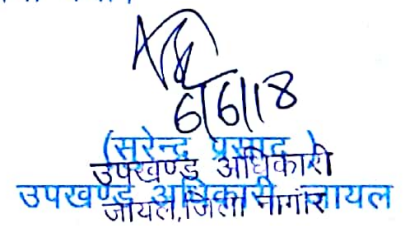 6/6/18
(सुरेन्द्र प्रसाद)
उपखण्ड अधिकारी
उपखण्ड अधिकारी जायल
जायल, जिला नागौर